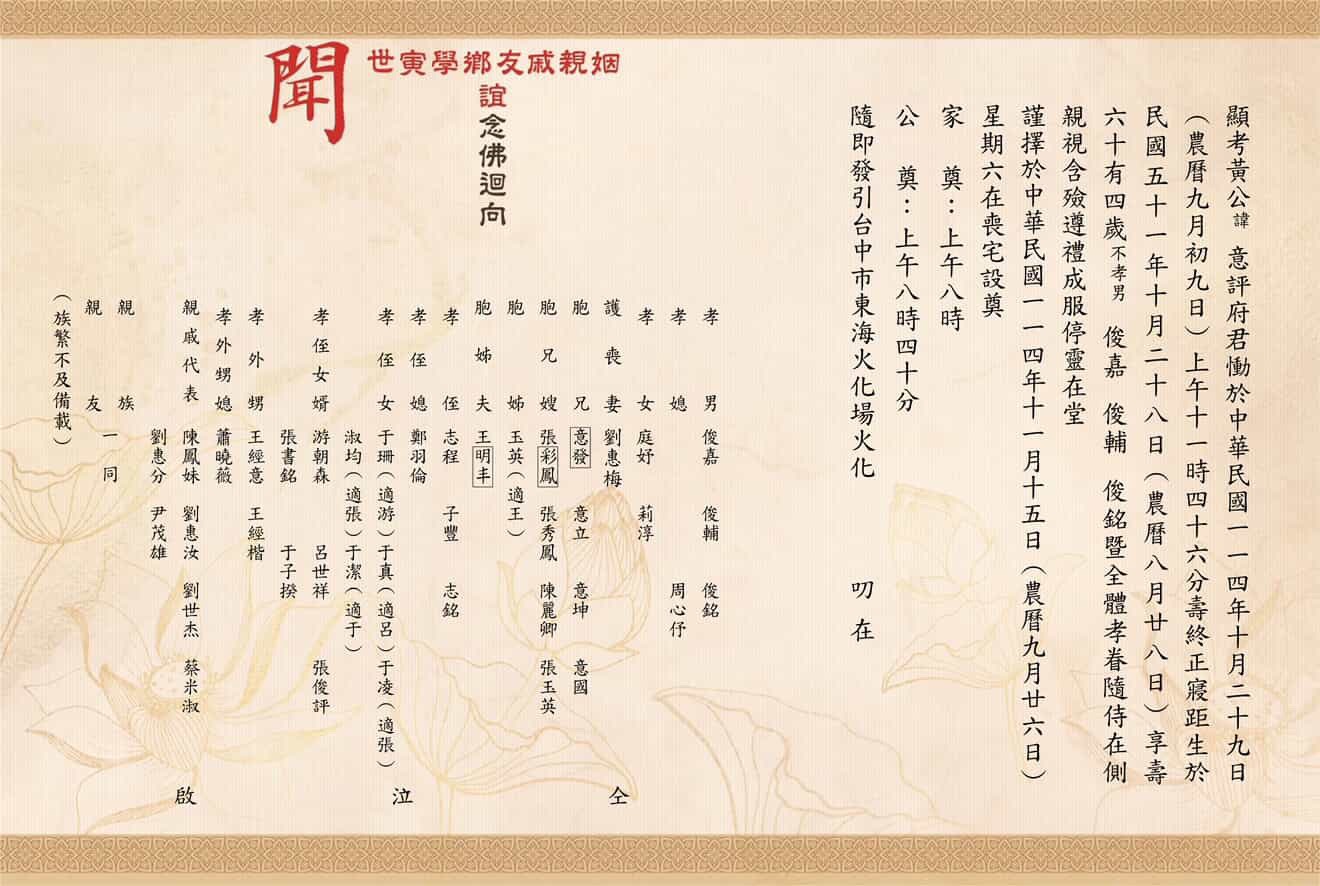 顯考黃公諱 意評府君慟於中華民國一一四年十月二十九日
（農曆九月初九日）上午十一時四十六分壽終正寢距生於
民國五十一年十月二十八日（農曆八月廿八日）享壽
六十有四歲不孝男 俊嘉 俊輔 俊銘暨全體孝眷隨侍在側
親視含殮遵禮成服停靈在堂
謹擇於中華民國一一四年十一月十五日（農曆九月廿六日）
星期六在喪宅設奠
家 奠：上午八時
公 奠：上午八時四十分
隨即發引台中市東海火化場火化 叨在
姻親戚友鄉學寅世
誼念佛迴向
聞
孝男 俊嘉 俊輔 俊銘
孝媳 周心伃
孝女 庭妤 莉淳
護喪妻 劉惠梅 仝
胞兄 意發 意立 意坤 意國
胞兄嫂 張彩鳳 張秀鳳 陳麗卿 張玉英
胞姊 玉英（適王）
胞姊夫 王明丰
孝侄 志程 子豐 志銘
孝侄媳 鄭羽倫
孝侄女 于珊（適游）于真（適呂）于凌（適張） 泣
淑均（適張）于潔（適于）
孝侄女婿 游朝森 呂世祥 張俊評
張書銘 于子揆
孝外甥 王經意 王經楷
孝外甥媳 蕭曉薇
親戚代表 陳鳳妹 劉惠汝 劉世杰 蔡米淑 啟
劉惠分 尹茂雄
親族
親友 一同
（族繁不及備載）